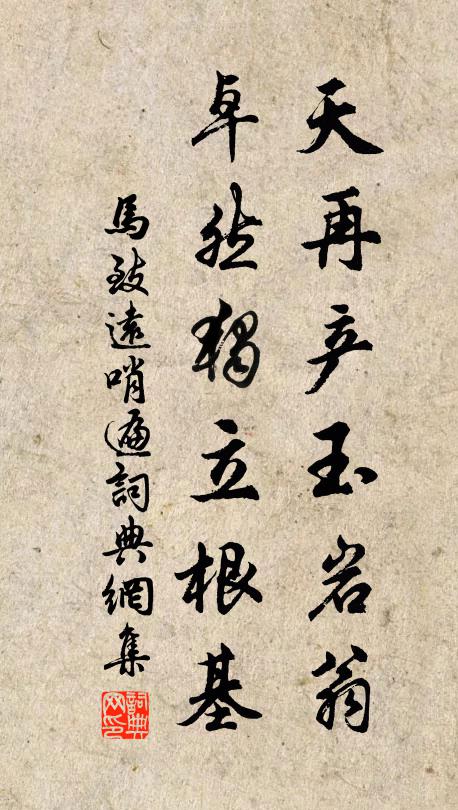 天再产玉岩翁
卓然獨立根基
馬致遠哨遍詞典網集
詞典网印